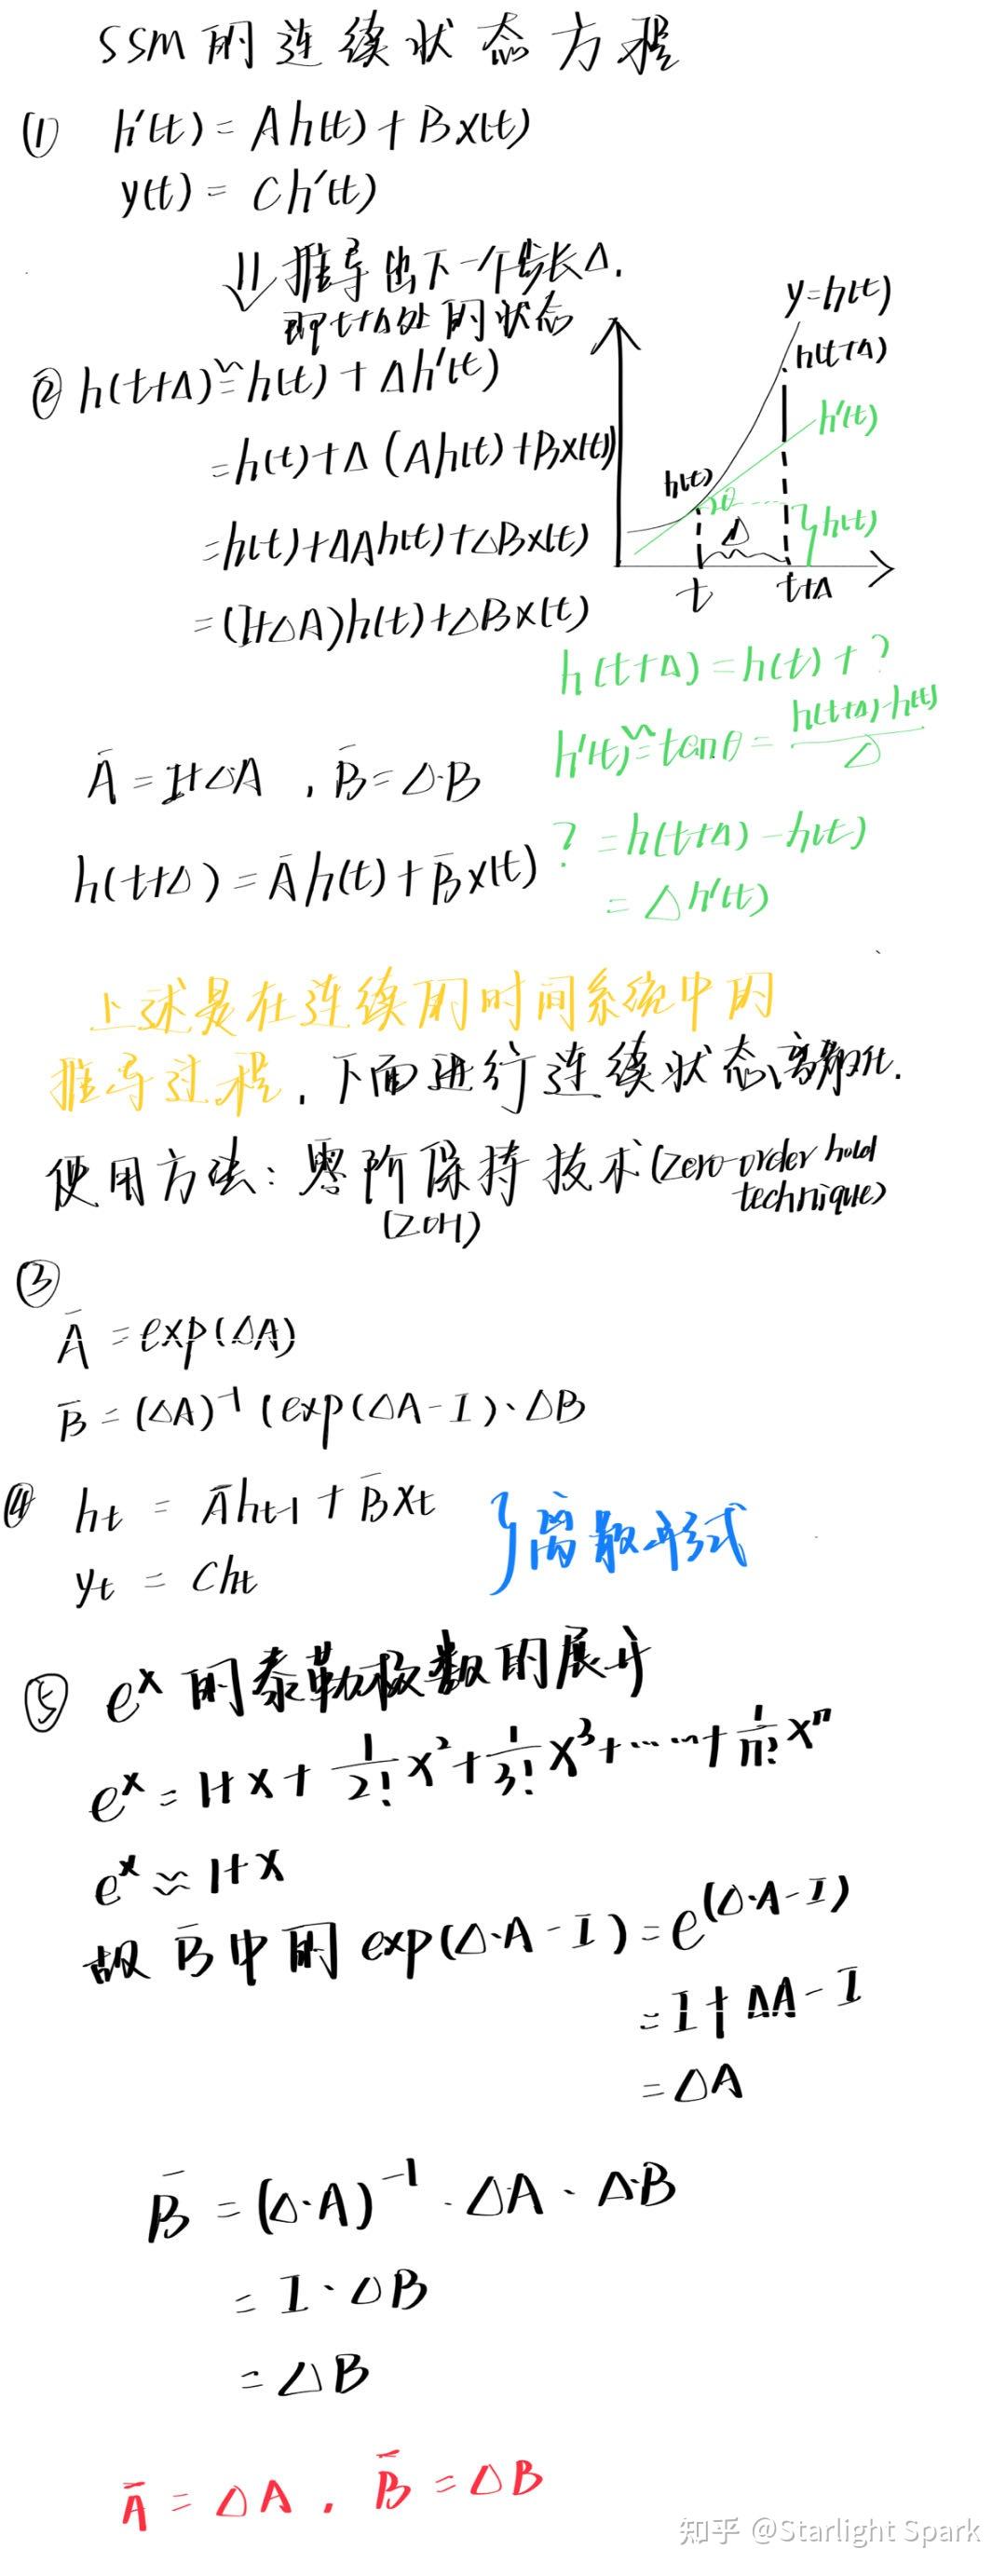 SSM的连续状态方程
(1) h'(t) = Ah(t) + Bx(t)
y(t) = Ch'(t)
⇓ 推导出下一个步长Δ.
即t+Δ处的状态
② h(t+Δ) ≌ h(t) + Δh'(t)
= h(t)+Δ (Ah(t)+Bx(t))
= h(t)+ΔAh(t)+ΔBx(t)
= (I+ΔA)h(t)+ΔBx(t)
y=h(t)
h(t+Δ)
h'(t)
h(t)
θ
Δ
}h(t)
t
t+Δ
h(t+Δ) = h(t) + ?
h'(t) ≌ tanθ = (h(t+Δ)-h(t))/Δ
? = h(t+Δ) - h(t)
= Δh'(t)
Ā = I+ΔA , B̄ = Δ·B
h(t+Δ) = Āh(t) + B̄x(t)
上述是在连续的时间系统中的
推导过程. 下面进行连续状态离散化.
使用方法: 零阶保持技术(zero-order hold
technique)
(ZOH)
③
Ā = exp(ΔA)
B̄ = (ΔA)⁻¹ (exp(ΔA-I)·ΔB
④ ht = Āht-1 + B̄xt
yt = Cht
}离散形式
⑤ eˣ的泰勒级数的展开
eˣ = 1+x+ 1/2! x² + 1/3! x³ + ······ + 1/n! xⁿ
eˣ ≈ 1+x
故B̄中的 exp(Δ·A-I) = e^(Δ·A-I)
= I+ΔA-I
= ΔA
B̄ = (Δ·A)⁻¹ · ΔA · Δ·B
= I·ΔB
= ΔB
Ā = ΔA , B̄ = ΔB
知乎 @Starlight Spark